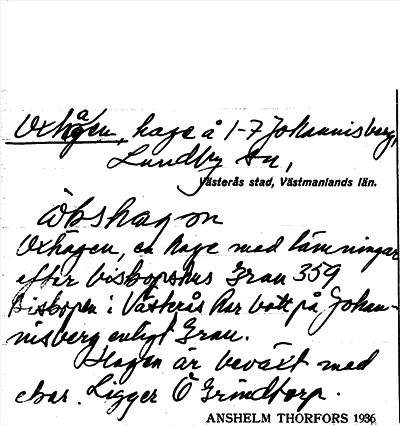 Oxhagen, hage å 1-7 Johannisberg,
Lundby sn,
Västerås stad, Västmanlands län.
ὼkshagɷn
Oxhagen, en hage med lämningar
efter biskopshus Grau 359
Biskopen i Västerås har bott på Johan-
nisberg enligt Grau.
Hagen är beväxt med
ekar. Ligger Ö Grindtorp.
ANSHELM THORFORS 1936